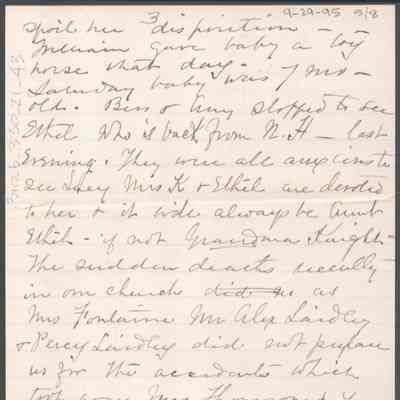 3
9-29-95 5/8
spoil her disposition -
William gave baby a toy
horse that day -
Saturday baby was 7 mo -
old. Bess & Amy stopped to see
Ethel who is back from N. H - last
Evening. They were all anxious to
see Lucy Mrs K & Ethel are devoted
to her & it will always be Aunt
Ethel - if not Grandma Knight -
The sudden deaths recently
in our church did us as
Mrs Fontaine Mr Alex Laidley
& Percy Laidley did not prepare
us for the accidents which
took away Mrs